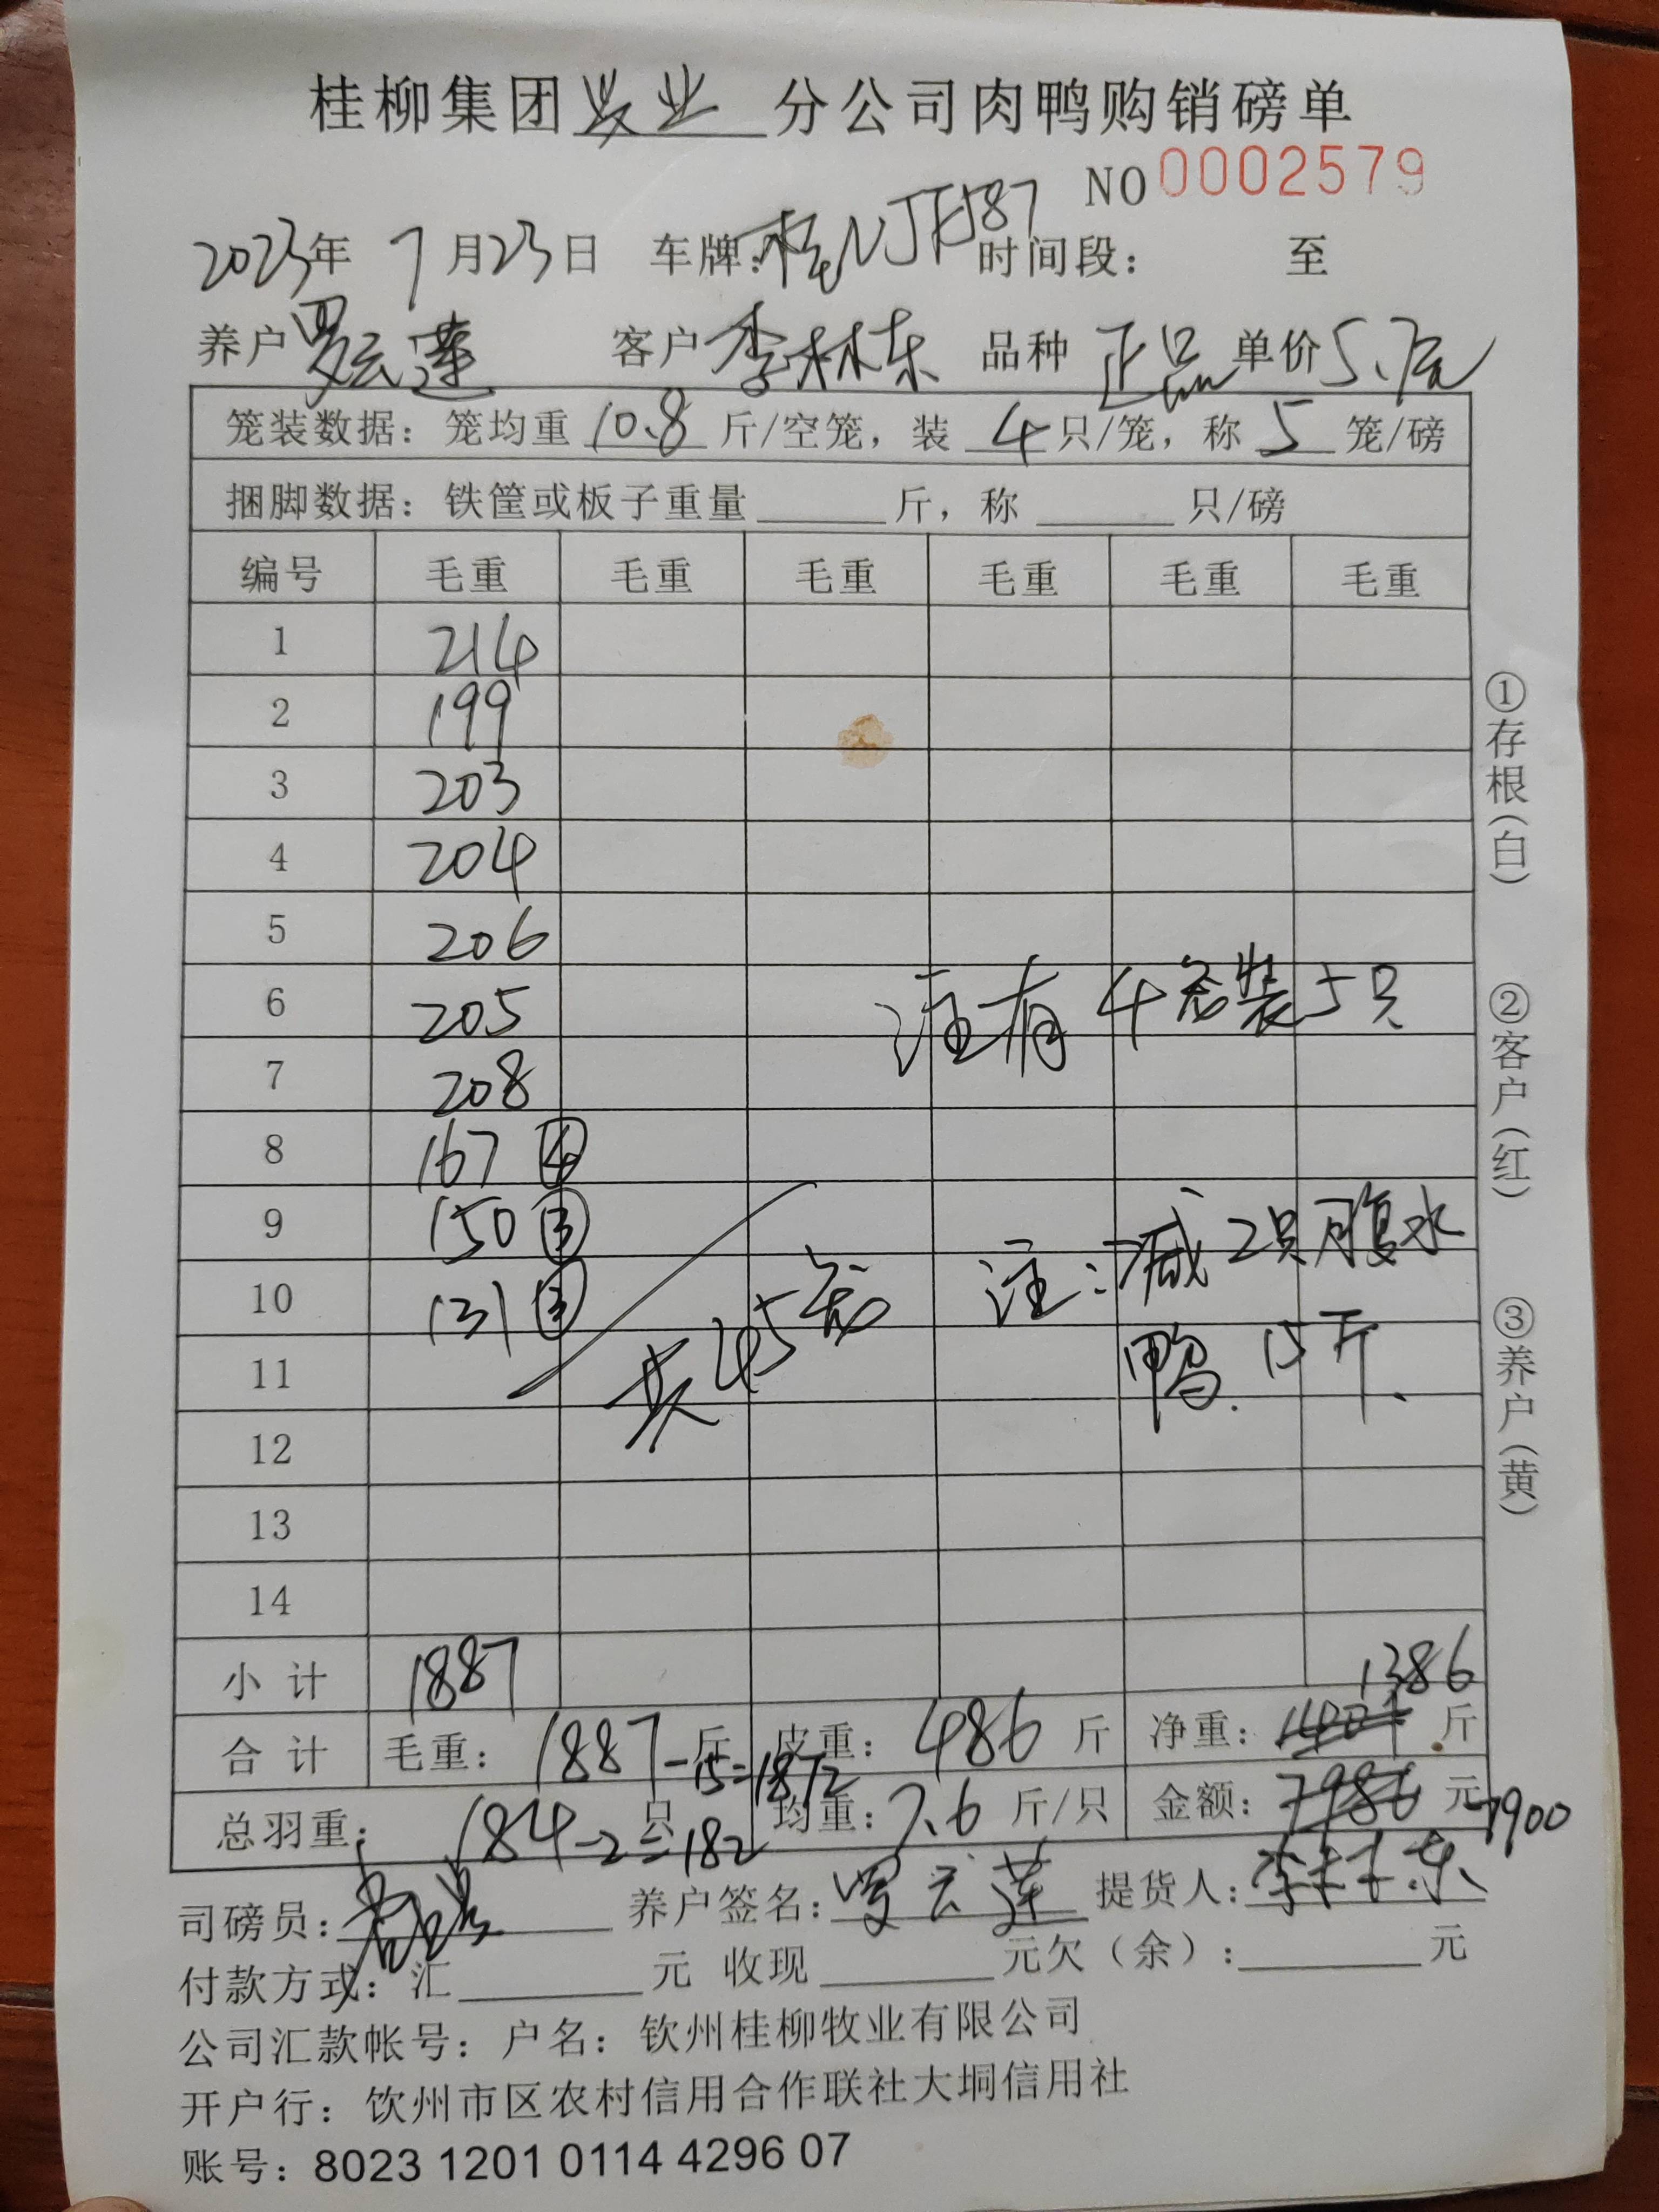 桂柳集团 牧业 分公司肉鸭购销磅单
NO 0002579
2023年 7月23日 车牌: 时间段: 至
养户 罗云莲 客户 李林东 品种 正品 单价 5.7元
笼装数据: 笼均重 10.8 斤/空笼, 装 4 只/笼, 称 5 笼/磅
捆脚数据: 铁筐或板子重量 斤, 称 只/磅
编号 毛重 毛重 毛重 毛重 毛重 毛重
1 214
2 199
3 203
4 204
5 206
6 205
注有4笼装5只
7 208
8 167 ④
9 150 ③
注:减2只腹水
10 131 ③
共45笼
鸭.15斤.
11
12
13
14
小计 1887
1386
合计 毛重: 1887斤-15=1872 皮重: 486 斤 净重: 1401 斤
总羽重: 184只-2=182 均重: 7.6 斤/只 金额: 7986 元 7900
司磅员: 养户签名: 罗云莲 提货人: 李林东
付款方式: 汇 元 收现 元欠(余): 元
公司汇款帐号: 户名: 钦州桂柳牧业有限公司
开户行: 钦州市区农村信用合作联社大垌信用社
账号: 8023 1201 0114 4296 07
①存根(白)
②客户(红)
③养户(黄)